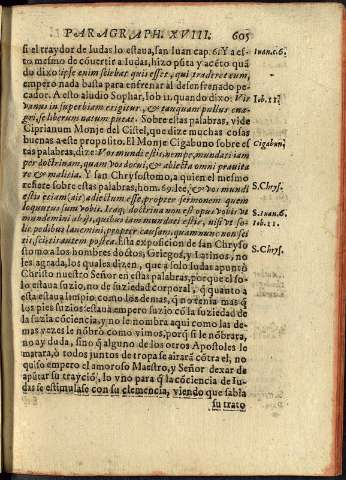 PARAGRAPH. XVIII. 605
si el traydor de Iudas lo estaua, san Iuan cap. 6. Y a es- Iuan.c.6.
to mesmo de cõuertir a Iudas, hizo pũta y acẽto quã
do dixo: ipse enim sciebat quis esset, qui traderet eum,
empero nada basta para enfrenar al desenfrenado pe-
cador. A esto aludio Sophar, Iob 11. quando dixo: Vir Iob. 11.
vanus in superbiam erigitur, & tanquam pullus ona-
gri, se liberum natum putat. Sobre estas palabras, vide
Ciprianum Monje del Cistel, que dize muchas cosas
buenas a este proposito. El Monje Cigabuno sobre es Cigabun.
tas palabras, dize: Vos mundi estis, nempe, mundati iam
per doctrinam, quam vos docui, & abiecta omni prauita
te & malicia. Y san Chrysostomo, a quien el mesmo
refiere sobre estas palabras, hom. 69. lee, & vos mundi S. Chrys.
estis etiam (ait) adiectum esse, propter sermonem quem
loquutus sum vobis. Itaq; doctrina non est opus vobis vt S. Iuan.6.
mundemini absit, quibus iam mundati estis, nisi vt so- Iob. 11.
lis pedibus lauemini, propter causam, quam nunc nesci
tis, scietis autem postea. Esta exposicion de san Chryso S. Chrys.
stomo a los hombres doctos, Griegos, y Latinos, no
les agrada, los quales dizen, que a solo Iudas apuntò
Christo nuestro Señor en estas palabras, porque el so-
lo estaua suzio, no de suziedad corporal, q̃ quanto a
esta estaua limpio como los demas, q̃ no tenia mas q̃
los pies suzios: estaua empero suzio cõ la suziedad de
la suzia cõciencia, y no le nombra aqui como las de-
mas vezes le nõbrò como vimos, porq̃ si le nõbrara,
no ay duda, sino q̃ alguno de los otros Apostoles le
matara, ò todos juntos de tropa se airarã cõtra el, no
quiso empero el amoroso Maestro, y Señor dexar de
apũtar su trayciõ, lo vno para q̃ la cõciencia de Iu-
das se estimulasse con su clemencia, viendo que sabia
su trato